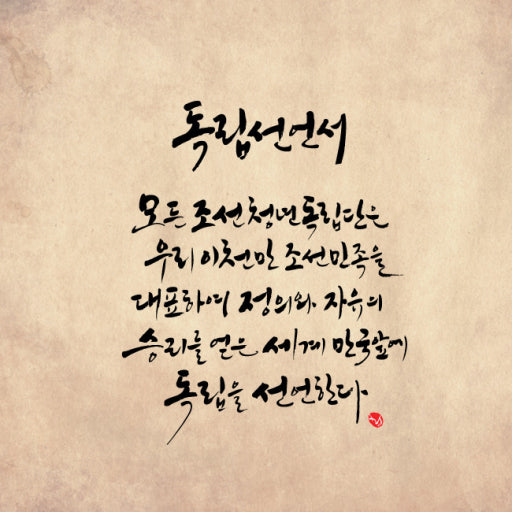 독립선언서
모든 조선청년독립단은
우리 이천만 조선민족을
대표하여 정의와 자유의
승리를 얻은 세계 만국앞에
독립을 선언한다